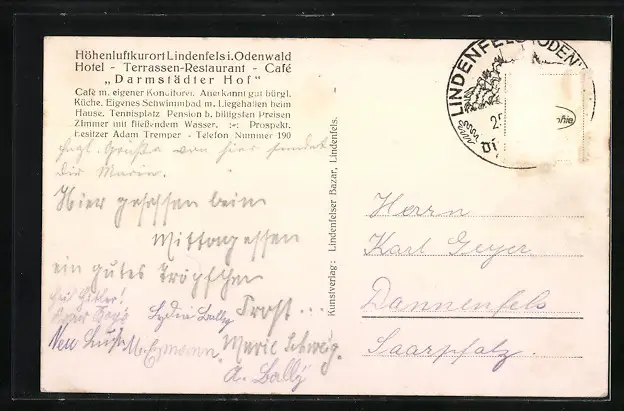 Höhenluftkurort Lindenfels i. Odenwald
Hotel - Terrassen-Restaurant - Café
„Darmstädter Hof"
Café m. eigener Konditorei. Anerkannt gut bürgl.
Küche. Eigenes Schwimmbad m. Liegehallen beim
Hause. Tennisplatz Pension b. billigsten Preisen
Zimmer mit fließendem Wasser. :-: Prospekt.
Besitzer Adam Tremper - Telefon Nummer 190
Grüße von hier sendet
Dir Maria.
Hier gesessen beim
Mittagessen
ein gutes Tröpfchen
Prost ...
Heil Hitler!
Lydia Bally
Marie Schweig.
A. Bally
Kunstverlag: Lindenfelser Bazar, Lindenfels.
LINDENFELS (ODENW
Herrn
Karl Geyer
Dannenfels
Saarpfalz.